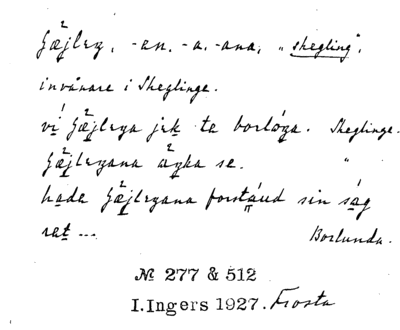 Gæjleg, -en, -a, -ana, "skegling",
invånare i Skeglinge.
vi Gæjlega jek te borlóga. Skeglinge.
Gæjlegana ågka se. "
hade Gæjlegana forståud sin såg
ret ... Borlunda.
№ 277 & 512
I. Ingers 1927. Frosta